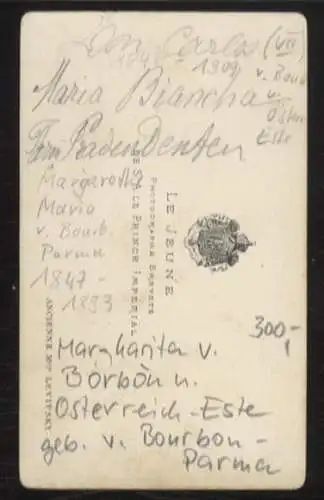 Don Carlos (VII)
1909
v. Bourb.
u.
Österr.
Este
Maria Biancha
Margaretha
Maria
v. Bourb.
Parma
1847 -
1893
LE JEUNE
PHOTOGRAPHE BREVETÉ
DE S.A. LE PRINCE IMPÉRIAL
ANCIENNE MON LEVITSKY
300,-
Margharita v.
Borbòn u.
Österreich-Este
geb. v. Bourbon-
Parma